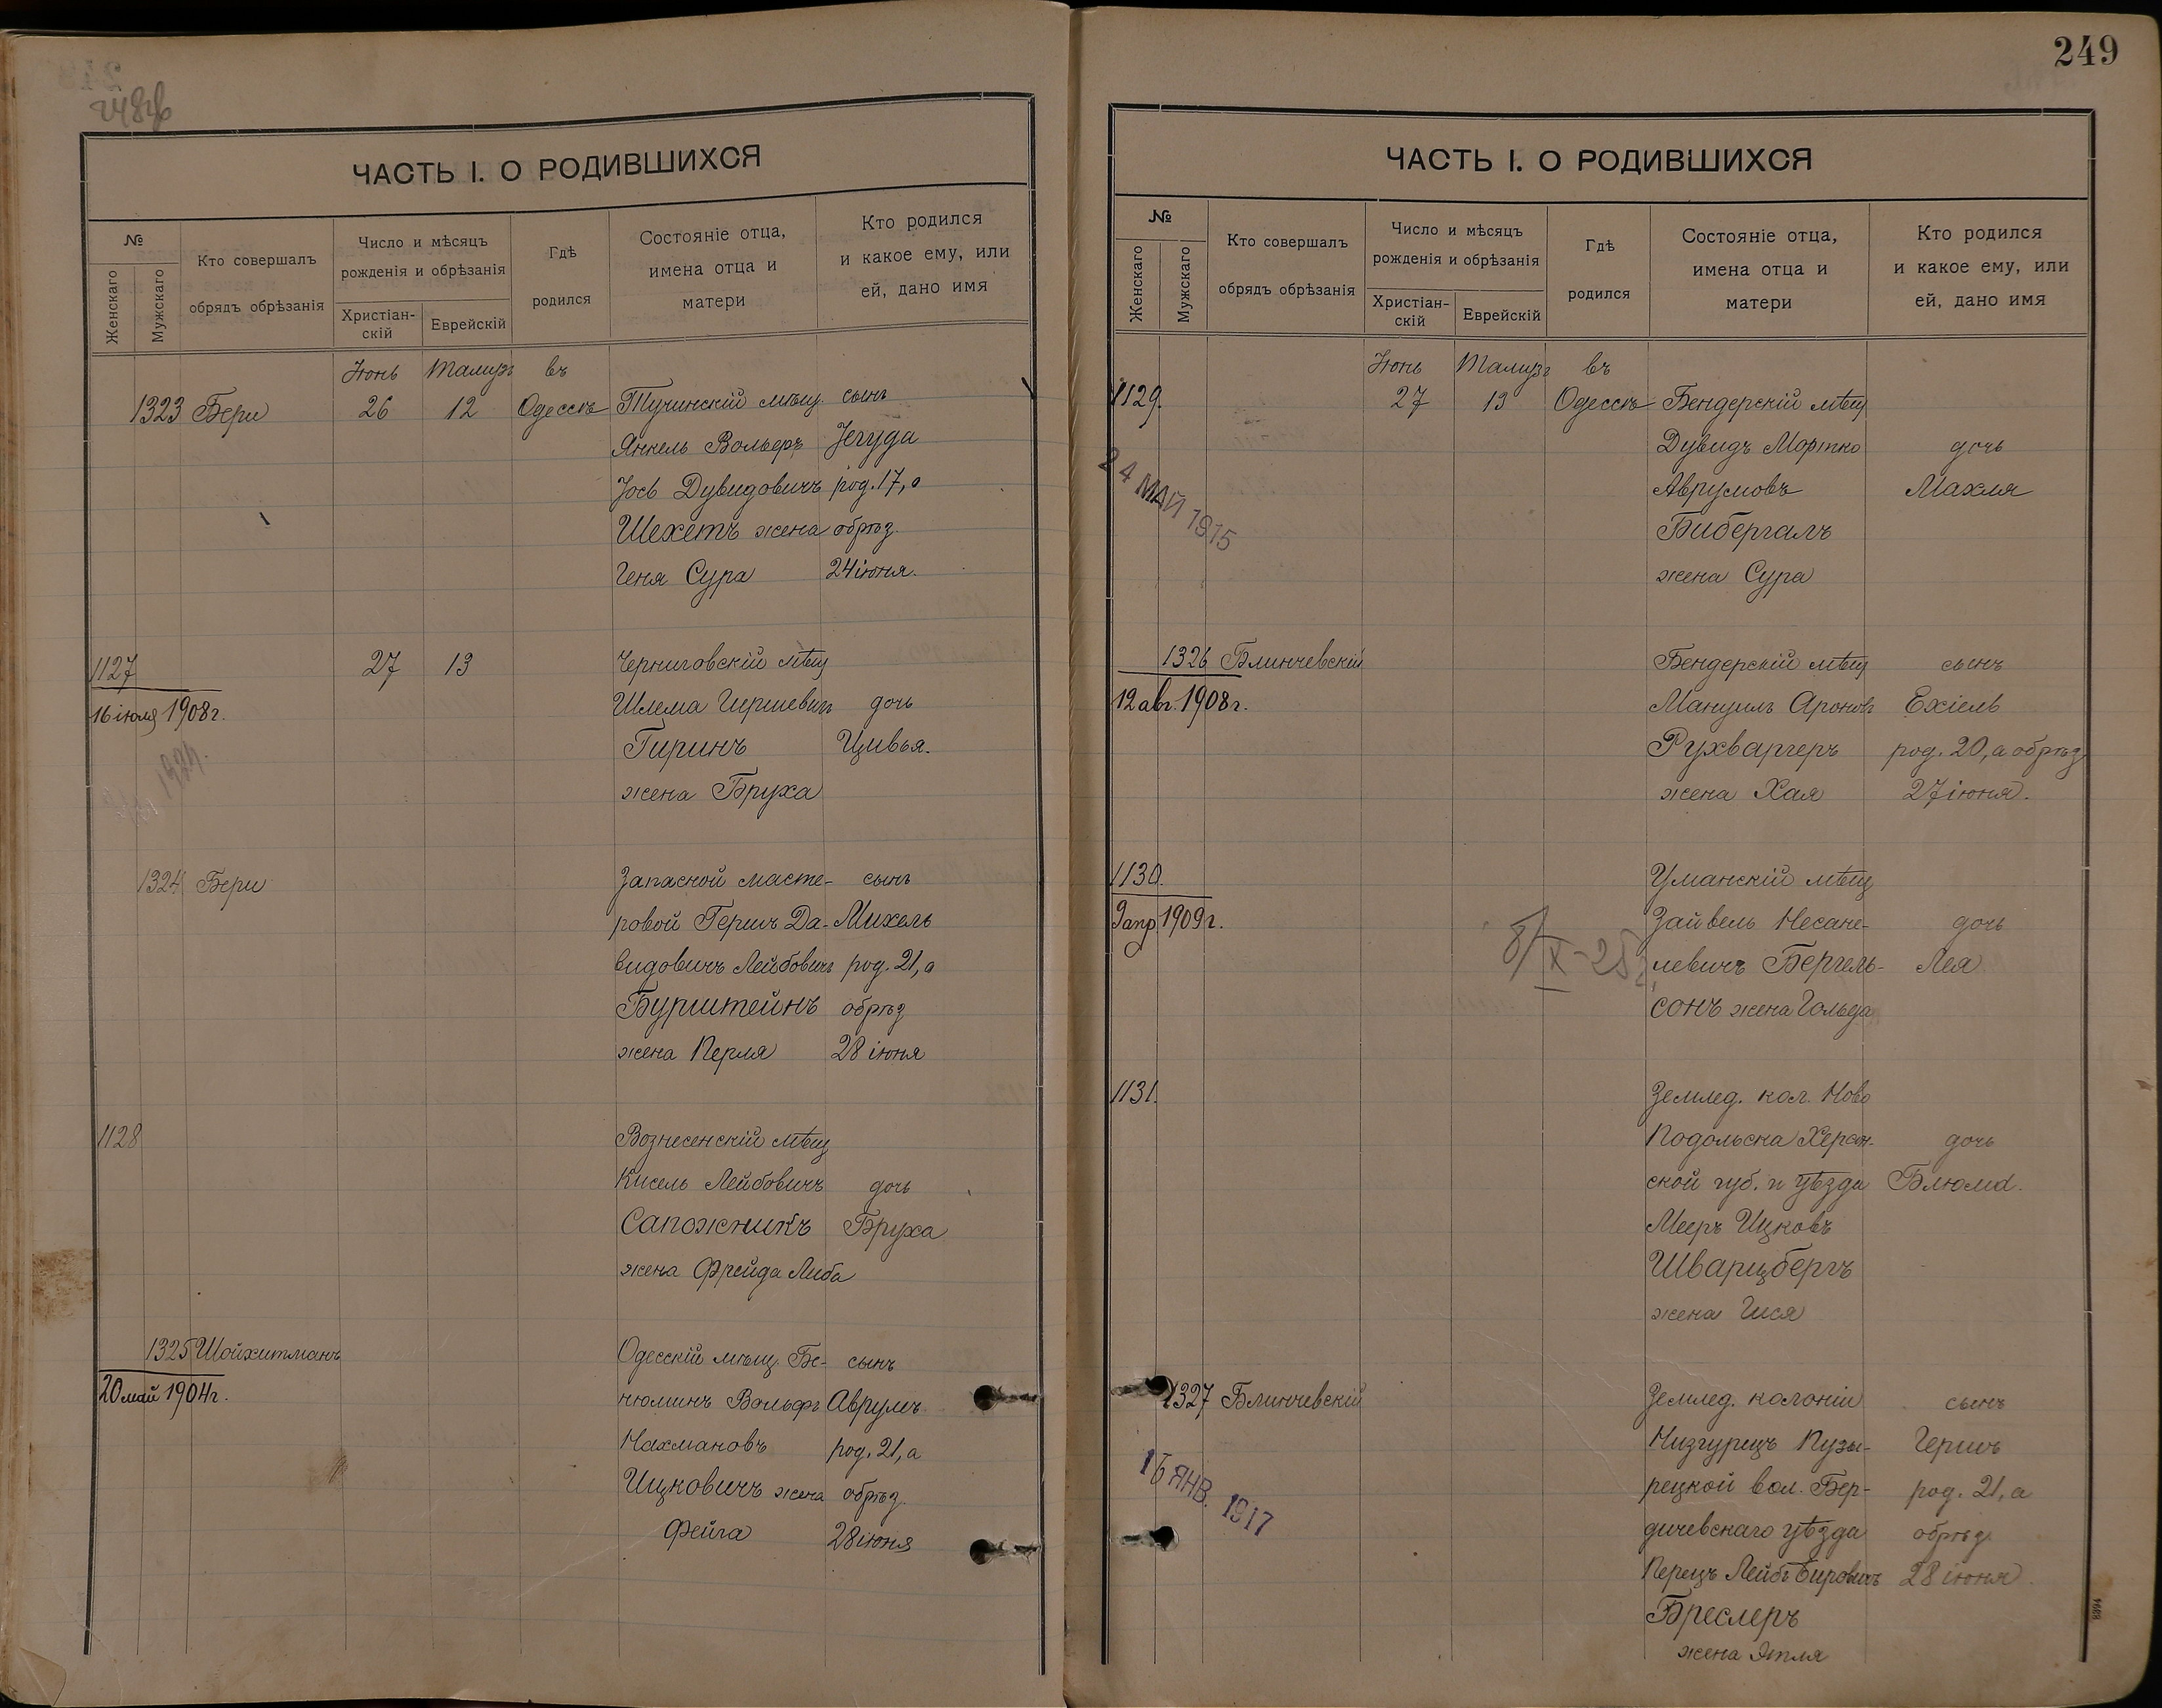 248об
ЧАСТЬ I. О РОДИВШИХСЯ
№
Женскаго
Мужскаго
Кто совершалъ
обрядъ обрѣзанія
Число и мѣсяцъ
рожденія и обрѣзанія
Христіан-
скій
Еврейскій
Гдѣ
родился
Состояніе отца,
имена отца и
матери
Кто родился
и какое ему, или
ей, дано имя
Іюнь Тамузъ въ
1323 Бери 26 12 Одессѣ Тучинскій мѣщ. сынъ
Янкель Вольфъ Іегуда
Іось Дувидовичъ род. 17, а
Шехетъ жена обрѣз.
Геня Сура 24 іюня.
1127 27 13 Черниговскій мѣщ
16 іюля 1908 г. Шлема Гиршевичъ дочь
Гиринъ Цивья.
жена Бруха
1324 Бери Запасной масте- сынъ
ровой Гершъ Да- Михель
видовичъ Лейбовичъ род. 21, а
Бурштейнъ обрѣз
жена Перля 28 іюня
1128 Вознесенскій мѣщ
Кисель Лейбовичъ дочь
Сапожникъ Бруха
жена Фрейда Либа
1325 Шойхитманъ Одесскій мѣщ. Бе- сынъ
20 май 1904 г. нюминъ Вольфъ Аврумъ
Нахмановъ род. 21, а
Ицковичъ жена обрѣз.
Фейга 28 іюня
249
ЧАСТЬ I. О РОДИВШИХСЯ
№
Женскаго
Мужскаго
Кто совершалъ
обрядъ обрѣзанія
Число и мѣсяцъ
рожденія и обрѣзанія
Христіан-
скій
Еврейскій
Гдѣ
родился
Состояніе отца,
имена отца и
матери
Кто родился
и какое ему, или
ей, дано имя
Іюнь Тамузъ въ
1129. 27 13 Одессѣ Бендерскій мѣщ
Дувидъ Мортко дочь
24 МАЙ 1915
Аврумовъ Махля
Бибергалъ
жена Сура
1326 Блинчевскій Бендерскій мѣщ сынъ
12 авг. 1908 г. Мануилъ Ароновъ Ехіель
Рухваргеръ род. 20, а обрѣз
жена Хая 27 іюня.
1130. Уманскій мѣщ
9 апр 1909 г. Зайвель Несане- дочь
8/X-25 левичъ Бергель- Лея
сонъ жена Гольда
1131. Землед. кол. Ново
Подольска Херсон- дочь
ской губ. и уѣзда Блюма.
Мееръ Ицковъ
Шварцбергъ
жена Гися
1327 Блинчевскій Землед. колоніи сынъ
Низгурецъ Пузы- Гершъ
16 ЯНВ. 1917
рецкой вол. Бер- род. 21, а
дичевскаго уѣзда обрѣз
Перецъ Лейбъ Бировичъ 28 іюня.
Бреслеръ
жена Этля